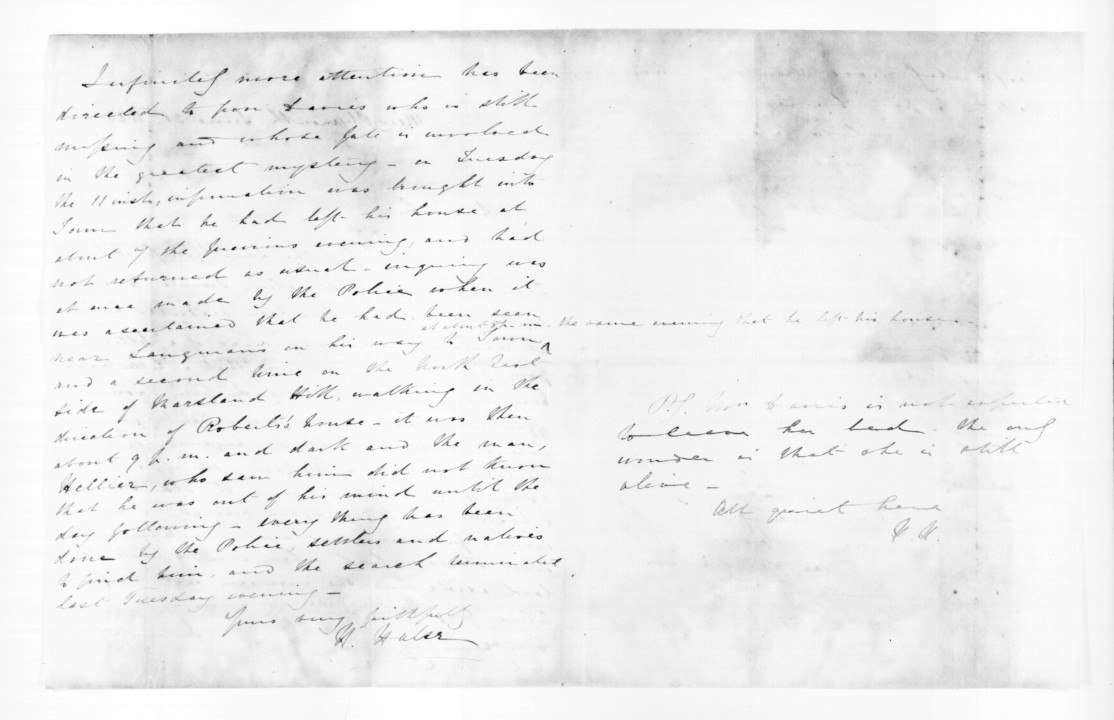 Infinitely more attention has been
directed to poor Davis who is still
missing and whose fate is involved
in the greatest mystery - on Tuesday
the 11 inst, information was brought into
Town that he had left his house at
about 7 the previous evening, and had
not returned as usual - inquiry was
at once made by the Police when it
was ascertained that he had been seen
near Langman's on his way to Town
at about p.m. the same evening that he left his house
and a second time on the North East
side of Marsland Hill, walking in the
direction of Roberts's house - it was then
about 9 p.m. and dark and the man,
Hellier, who saw him did not know
that he was out of his mind until the
day following - every thing has been
done by the Police settlers and natives
to find him, and the search terminated
last Tuesday evening -
Yours very faithfully
H. Halse
P.S. Mrs Davis is not expected
to leave her bed. The only
wonder is that she is still
alive -
All quiet here
H. H.